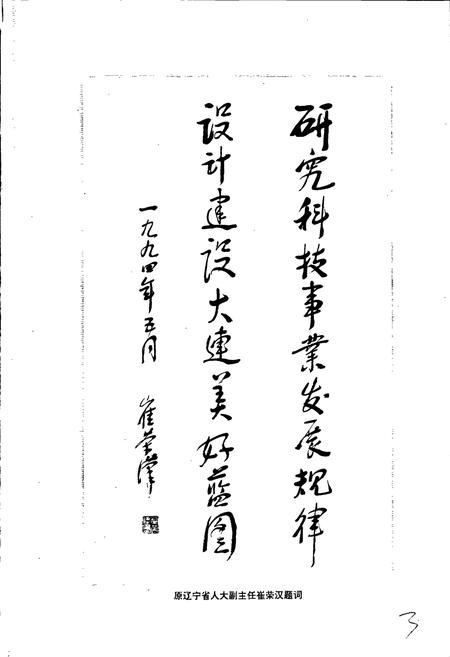 研究科技事业发展规律
设计建设大连美好蓝图
一九九四年五月 崔荣汉
原辽宁省人大副主任崔荣汉题词
3